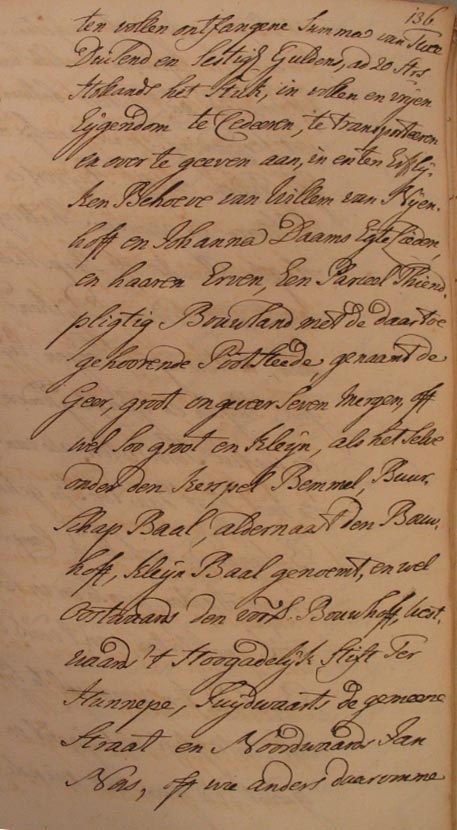 136
ten vollen ontfangene Summa van Twee
Duisend en Sestigh Guldens, ad 20 Strs
Hollands het Stuk, in vollen en vrijen
Eijgendom te Cedeeren, te transporteeren
en over te geeven aan, in en ten Erflij,
ken Behoeve van Willem van Nijen,
hoff en Johanna Daams Egte Lieden,
en haaren Erven, Een Parceel Thiend,
pligtig Bouwland met de daartoe
gehoorende Pootsteede genaamt de
Geer, groot ongeveer Seven Mergen, off
wel soo groot en kleijn, als het selve
onder den Kerspel Bemmel, Buur,
schap Baal, aldernaast den Bouw,
hoff, Kleijn Baal genoemt, en wel
Oostwaars den vors. Bouwhoff, West,
waars 't Hoogadelijk Stift Ter
Hunnepe, Suijdwaarts de gemeene
Straat en Noordwaards Jan
Nas, off wie anders daaromme